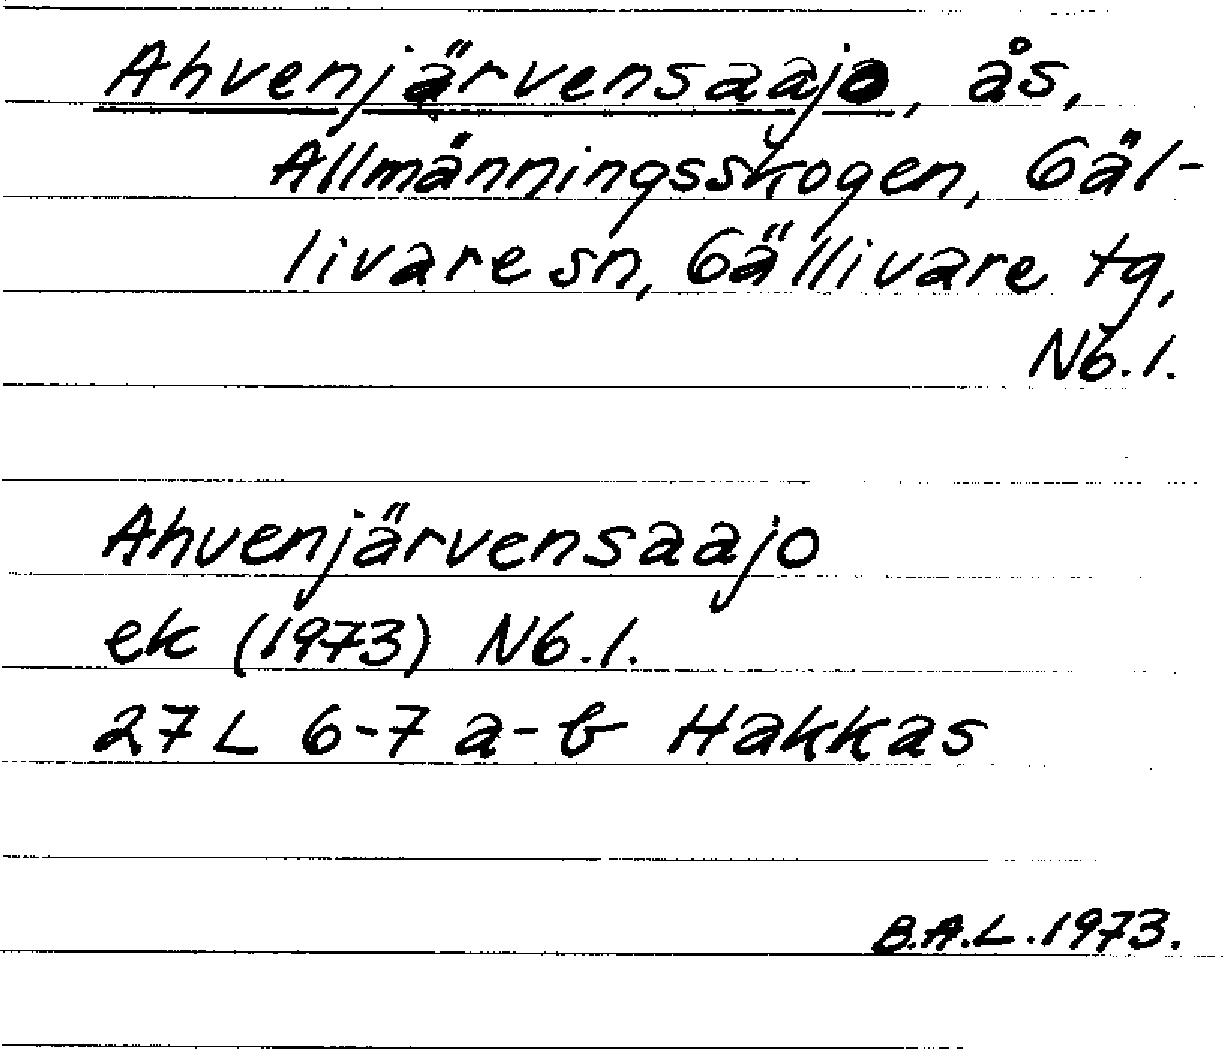 Ahvenjärvensaajo, ås,
Allmänningsskogen, Gäl-
livare sn, Gällivare tg,
Nb.l.
Ahvenjärvensaajo
ek (1973) Nb.l.
27 L 6-7 a-b Hakkas
B.A.L. 1973.